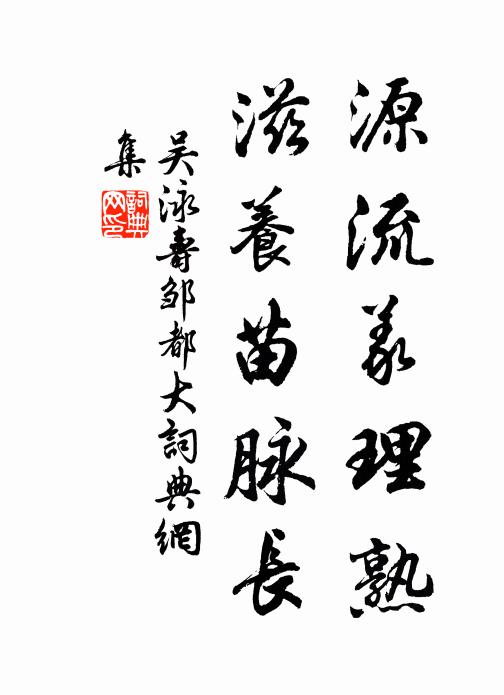 源流義理熟
滋養苗脉長
吳泳壽邹都大詞典網
集
詞典网印